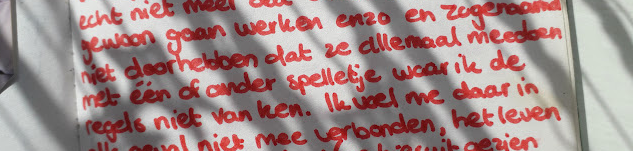 echt niet meer
gewoon gaan werken enzo en zogenaamd
niet doorhebben dat ze allemaal meedoen
met één of ander spelletje waar ik de
regels niet van ken. Ik voel me daar in
geval niet mee verbonden, het leven
gezien